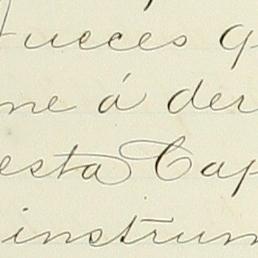 Jueces q
me á der
esta Cap
instrum